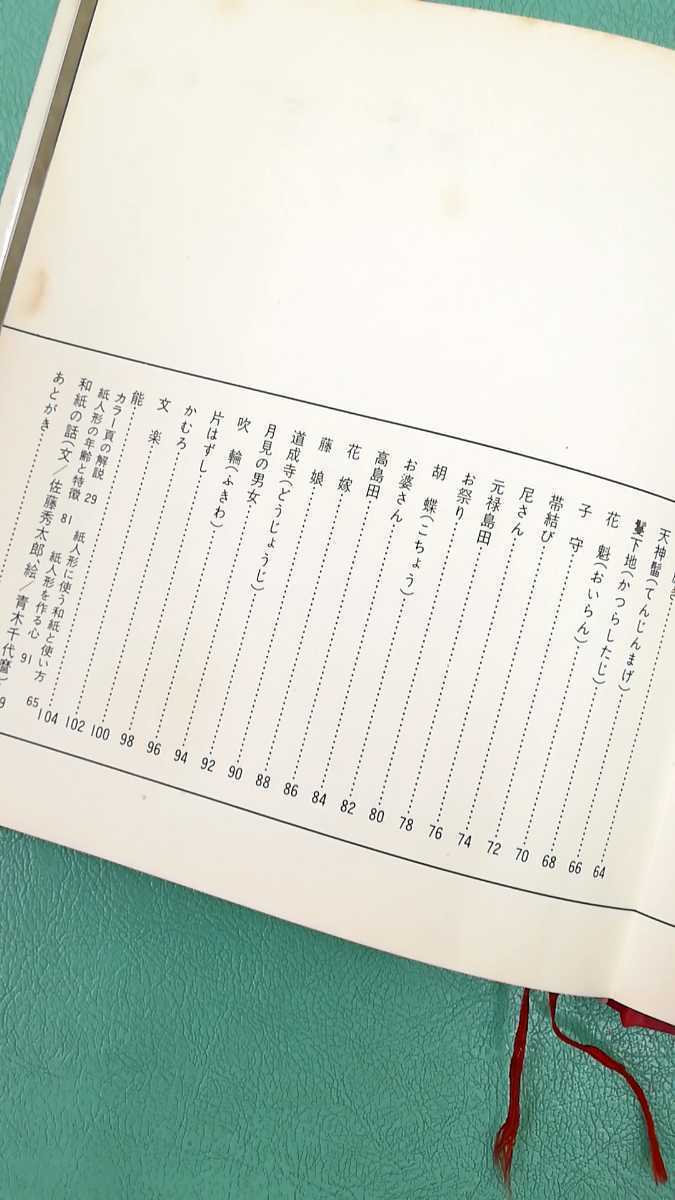 天神髷(てんじんまげ)……66
鬘下地(かつらしたじ)……68
花魁(おいらん)……70
子守……72
帯結び……74
尼さん……76
元禄島田……78
お祭り……80
胡蝶(こちょう)……82
お婆さん……84
高島田……86
花嫁……88
藤娘……90
道成寺(どうじょうじ)……92
月見の男女……94
吹輪(ふきわ)……96
片はずし……98
かむろ……100
文楽……102
能……104
カラー頁の解説 29 紙人形に使う和紙と使い方 65
紙人形の年齢と特徴 81 紙人形を作る心 91
和紙の話(文/佐藤秀太郎 絵/青木千代麿)
あとがき……
64